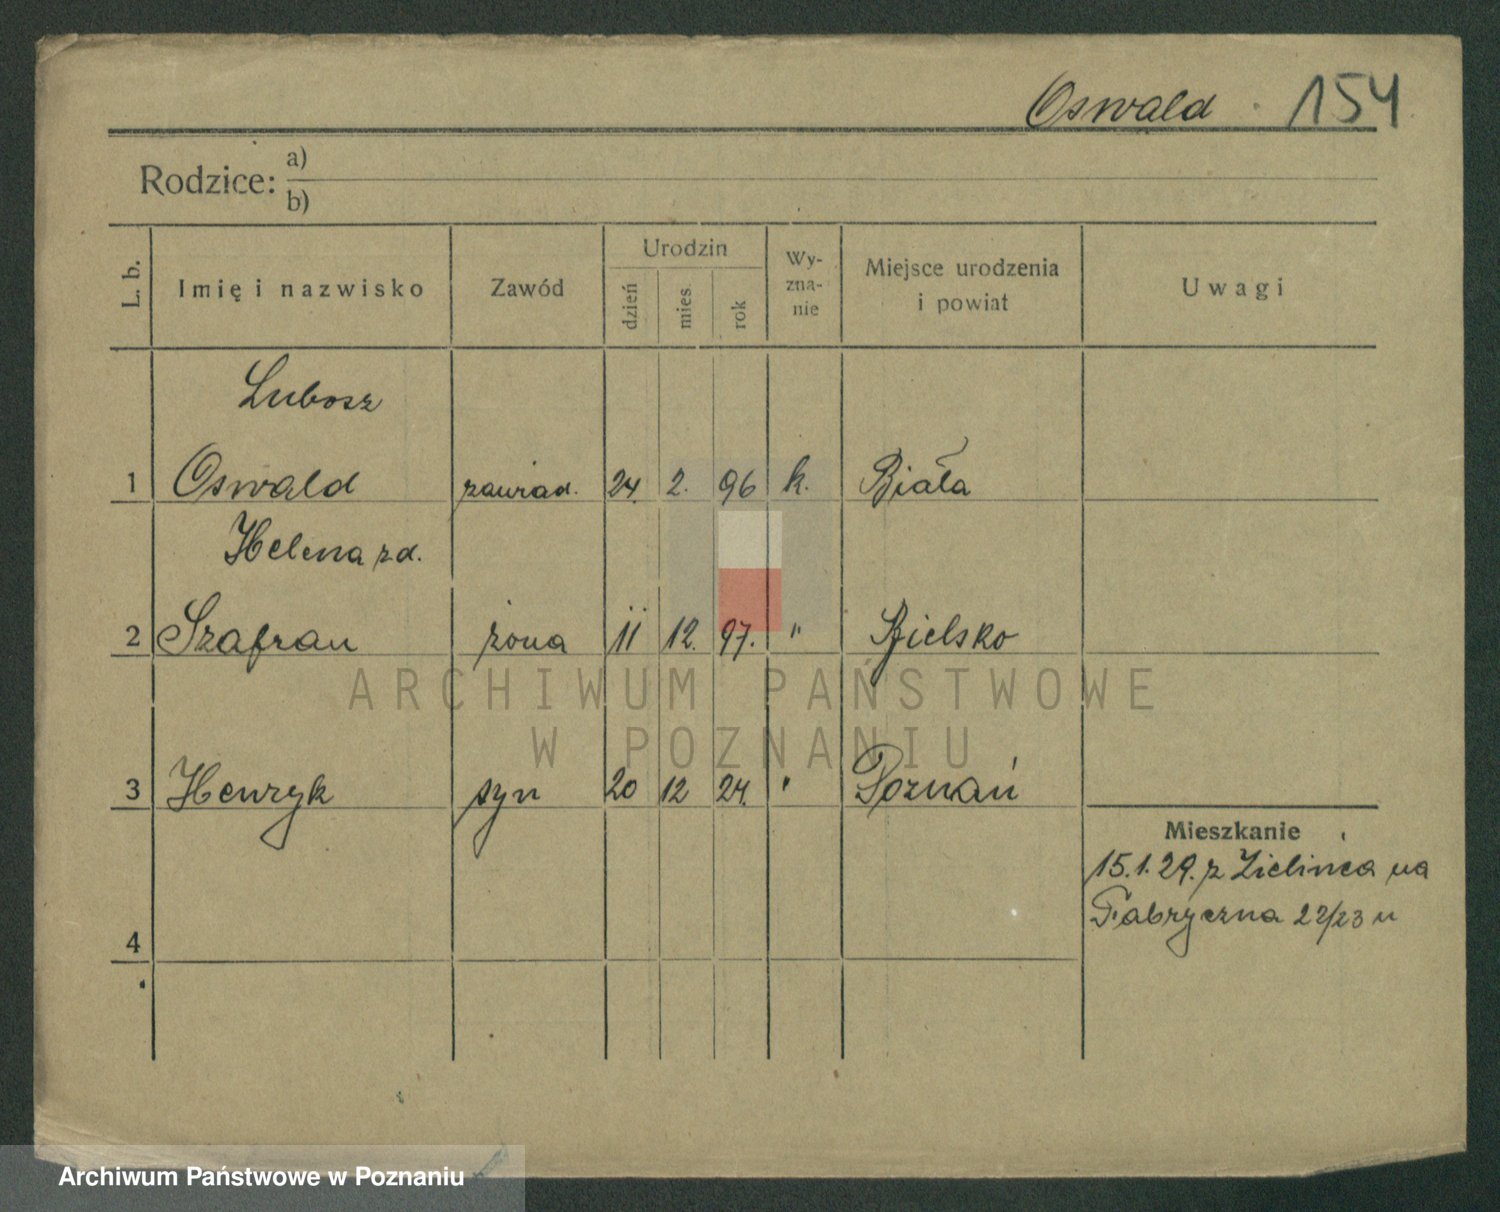 Oswald 154
Rodzice: a)
b)
L. b. Imię i nazwisko Zawód Urodzin dzień mies. rok Wy-zna-nie Miejsce urodzenia i powiat Uwagi
Lubosz
1 Oswald zawiad. 24. 2. 96 k. Biała
Helena zd.
2 Szafran żona 11 12. 97. " Bielsko
ARCHIWUM PAŃSTWOWE
W POZNANIU
3 Henryk syn 20 12 24. " Poznań
Mieszkanie
15.1.29. z Zielińca na
Fabryczna 22/23 u
4
Archiwum Państwowe w Poznaniu